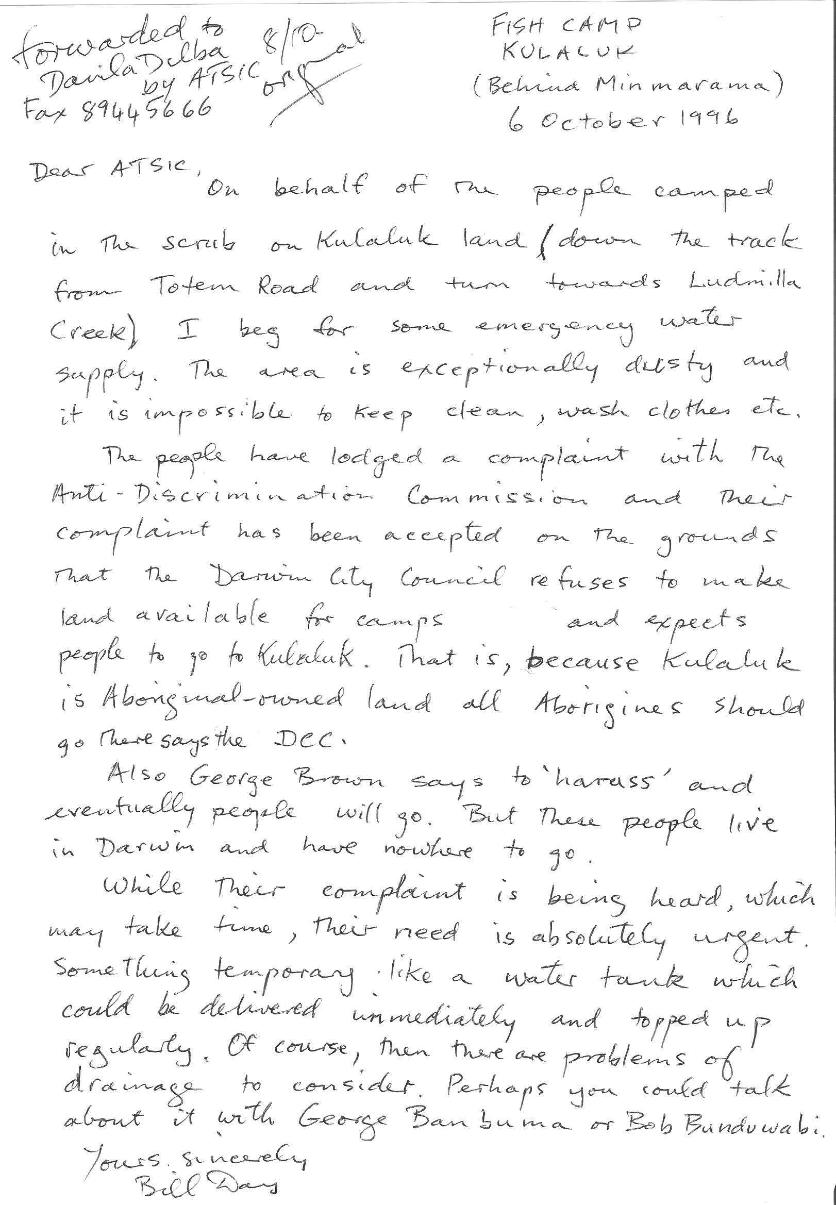 forwarded to
Danila Dilba 8/10
by ATSIC original
Fax 89445666
FISH CAMP
KULALUK
(Behind Minmarama)
6 October 1996
Dear ATSIC,
On behalf of the people camped
in the scrub on Kulaluk land (down the track
from Totem Road and turn towards Ludmilla
Creek) I beg for some emergency water
supply. The area is exceptionally dusty and
it is impossible to keep clean, wash clothes etc.
The people have lodged a complaint with the
Anti-Discrimination Commission and their
complaint has been accepted on the grounds
that the Darwin City Council refuses to make
land available for camps and expects
people to go to Kulaluk. That is, because Kulaluk
is Aboriginal-owned land all Aborigines should
go there says the DCC.
Also George Brown says to 'harass' and
eventually people will go. But these people live
in Darwin and have nowhere to go.
While their complaint is being heard, which
may take time, their need is absolutely urgent.
Something temporary like a water tank which
could be delivered immediately and topped up
regularly. Of course, then there are problems of
drainage to consider. Perhaps you could talk
about it with George Banbuma or Bob Bunduwabi.
Yours sincerely
Bill Day